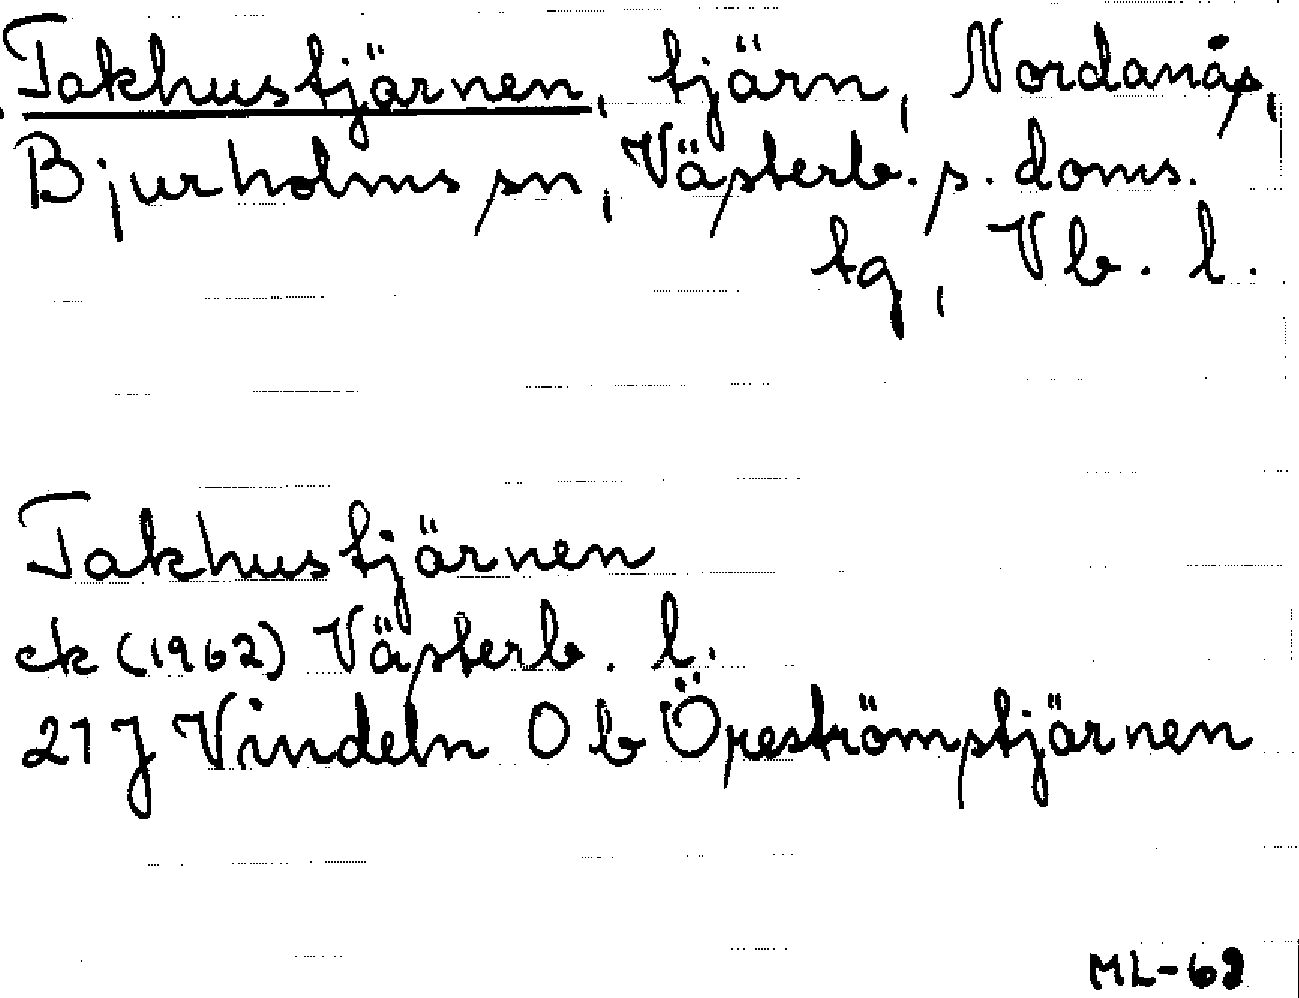 Takhustjärnen, tjärn, Nordanås,
Bjurholms sn, Västerb. s. doms.
tg, Vb. l.
Takhustjärnen
ek (1962) Västerb. l.
21 J Vindeln 0 b Öreströmstjärnen
ML-68